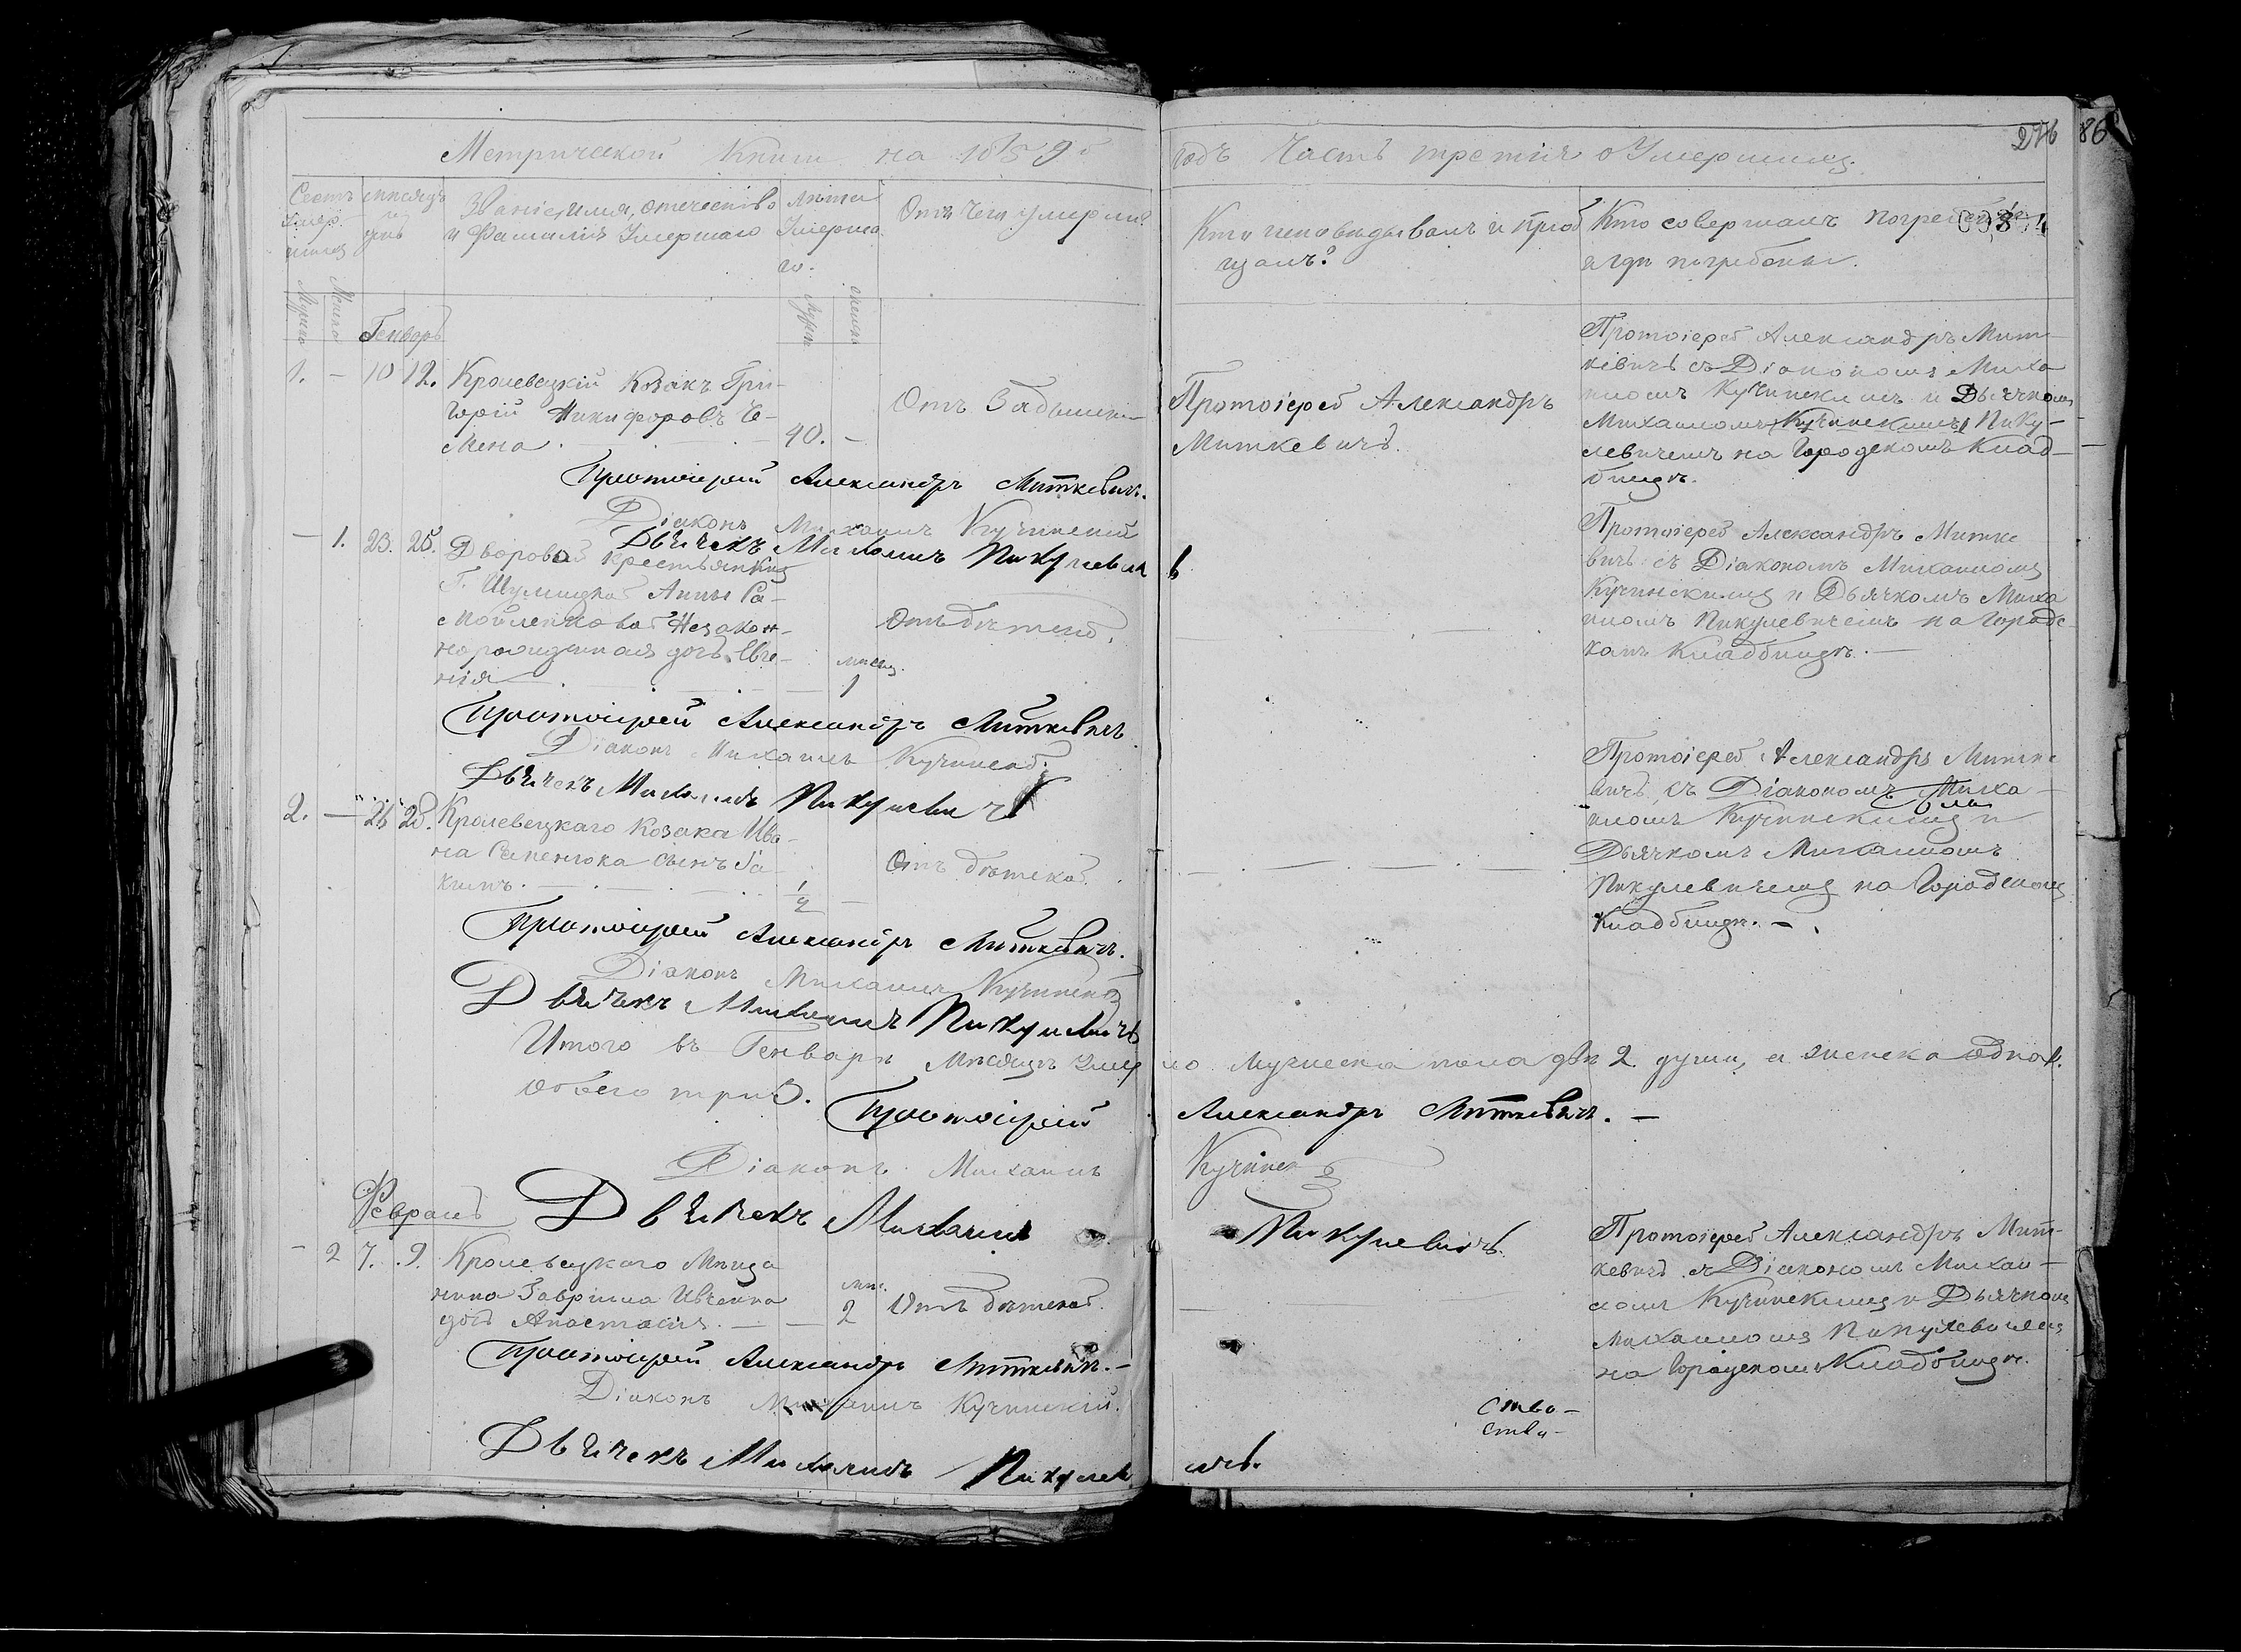 Метрической Книги на 1859й
годъ Часть третія о Умершихъ.
276 86
Счетъ умер-
шихъ
Мужска
Женска
мѣсяцъ
и
день
Званіе, имя, отечество
и Фамилія Умершаго
Лѣта
Умерша
го.
мужеск
женска
Отъ чего умерли
Кто исповѣдывалъ и пріоб
щалъ?
Кто совершалъ погребеніе
и гдѣ погребены.
Генварь
1. — 10 12. Кролевецкій Козакъ Гри-
горій Никифоровъ Че-
мена 40. —
Отъ Задышки
Протоіерей Александръ
Миткевичъ.
Протоіерей Александръ Мит-
кевичъ съ Діакономъ Миха
иломъ Кучинскимъ и Дьячкомъ
Михаиломъ Кучинскимъ Пику-
левичемъ на Городскомъ Клад-
бищѣ.
Протоіерей Александръ Миткевичъ.
Діаконъ Михаилъ Кучинский
Дьячекъ Михаилъ Пикулевичъ
— 1. 23. 25. Дворовой крестьянки
Г. Шумицкой Анны Са-
мойленковой Незакон-
норожденная дочь Евге-
нія мѣсяц. 1
Отъ дѣтской.
Протоіерей Александръ Митке
вичъ съ Діакономъ Михаиломъ
Кучинскимъ и Дьячкомъ Миха
иломъ Пикулевичемъ на Городс-
комъ Кладбищѣ. —
Протоіерей Александръ Миткевичъ.
Діаконъ Михаилъ Кучинской.
Дьячекъ Михаилъ Пикулевичъ
2. — 26 28. Кролевецкаго Козака Ива-
на сынъ Іа-
кимъ. 1/2 —
Отъ дѣтской.
Протоіерей Александръ Митке
вичъ, съ Діакономъ Миха-
иломъ Кучинскимъ и
Дьячкомъ Михаиломъ
Пикулевичемъ на Городскомъ
Кладбищѣ. —
Протоіерей Александръ Миткевичъ.
Діаконъ Михаилъ Кучинской
Дьячекъ Михаилъ Пикулевичъ
Итого въ Генварѣ Мѣсяцѣ Умерло Мужеска пола двѣ 2. души, а женска одна 1.
Обоего три 3.
Протоіерей Александръ Миткевичъ. —
Діаконъ Михаилъ Кучинской
Дьячекъ Михаилъ Пикулевичъ.
Февраль
— 2 7. 9. Кролевецкаго Мѣща
нина Гавріила Ивченка
дочь Анастасія. — — мѣс. 2
Отъ дѣтской.
Протоіерей Александръ Мит-
кевичъ съ Діакономъ Михаи-
ломъ Кучинскимъ и Дьячкомъ
Михаиломъ Пикулевичемъ
на Городскомъ Кладбищѣ.
Протоіерей Александръ Миткевичъ. —
Діаконъ Михаилъ Кучинскій.
ство-
ство-
Дьячекъ Михаилъ Пикулевичъ.